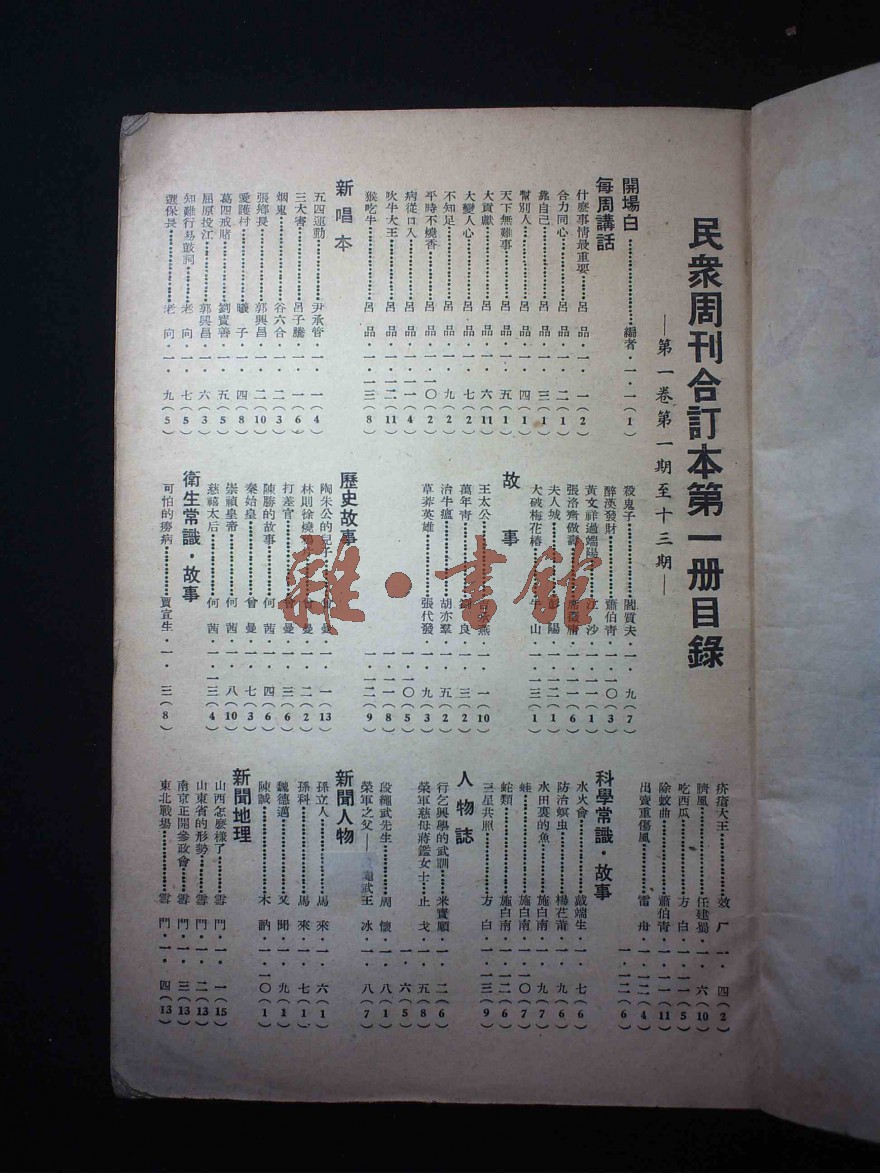 民衆周刊合訂本第一册目錄
—第一卷第一期至十三期—
開場白…………編者 一·一(1)
每周講話
什麼事情最重要……呂品·一·一(2)
合力同心……呂品·一·二(1)
靠自己……呂品·一·三(1)
幫別人……呂品·一·四(1)
天下無難事……呂品·一·五(1)
大貢獻……呂品·一·六(11)
大變人心……呂品·一·七(2)
不知足……呂品·一·九(2)
平時不燒香……呂品·一·一〇(2)
病從口入……呂品·一·一一(4)
吹牛大王……呂品·一·一二(11)
猴吃牛……呂品·一·一三(8)
新唱本
五四運動……尹承管·一·一(4)
三大害……呂子騰·一·一(6)
烟鬼……谷六合·一·二(3)
張鄉長……郭興昌·一·二(10)
愛護村……曦子·一·四(8)
葛四戒賭……劉寶善·一·五(5)
屈原投江……郭興昌·一·六(3)
知難行易鼓詞……老向·一·七(5)
選保長……老向·一·九(5)
殺鬼子……閻質夫·一·九(7)
醉漢發財……蕭伯青·一·一〇(3)
黃文祥過端陽……江沙·一·一一(1)
張洛齊做壽……席徵庸·一·一一(6)
夫人城……彭陽·一·一二(1)
大破梅花樁……牛山·一·一三(1)
故事
王太公……燕·一·一(10)
萬年青……良·一·三(2)
治牛瘟……胡亦羣·一·五(2)
草莽英雄……張代發·一·九(3)
一·一〇(5)
一·一一(8)
一·一二(9)
歷史故事
陶朱公的兒子……曾曼·一·一(13)
林則徐燒鴉……曾曼·一·二(2)
打差官……曾曼·一·三(6)
陳勝的故事……何茜·一·四(6)
秦始皇……曾曼·一·七(3)
崇禎皇帝……何茜·一·八(10)
慈禧太后……何茜·一·一三(4)
衛生常識·故事
可怕的癆病……賈宜生·一·三(8)
疥瘡大王……效厂·一·四(2)
臍風……任建蜀·一·六(10)
吃西瓜……方白·一·一一(5)
除蚊曲……蕭伯青·一·一一(11)
出賣重傷風……雷舟·一·一二(4)
一·一二(6)
科學常識·故事
水火會……戴端生·一·七(6)
防治螟虫……楊芢莆·一·九(6)
水田裏的魚……施白南·一·九(7)
蛙……施白南·一·一〇(7)
蛇類……施白南·一·一二(6)
三星共照……方白·一·一三(9)
人物誌
行乞興學的武訓……米實順·一·二(6)
榮軍慈母蔣鑑女士·止戈·一·五(8)
一·六(5)
段繩武先生……周懷·一·八(1)
榮軍之父——段繩武王冰·一·八(7)
新聞人物
孫立人……馬來·一·六(1)
孫科……馬來·一·七(1)
魏德邁……又聞·一·九(1)
陳誠……木訥·一·一〇(1)
新聞地理
山西怎麼樣了……雲門·一·一(15)
山東省的形勢……雲門·一·二(13)
南京正開參政會……雲門·一·三(13)
東北戰場……雲門·一·四(13)
雜·書館